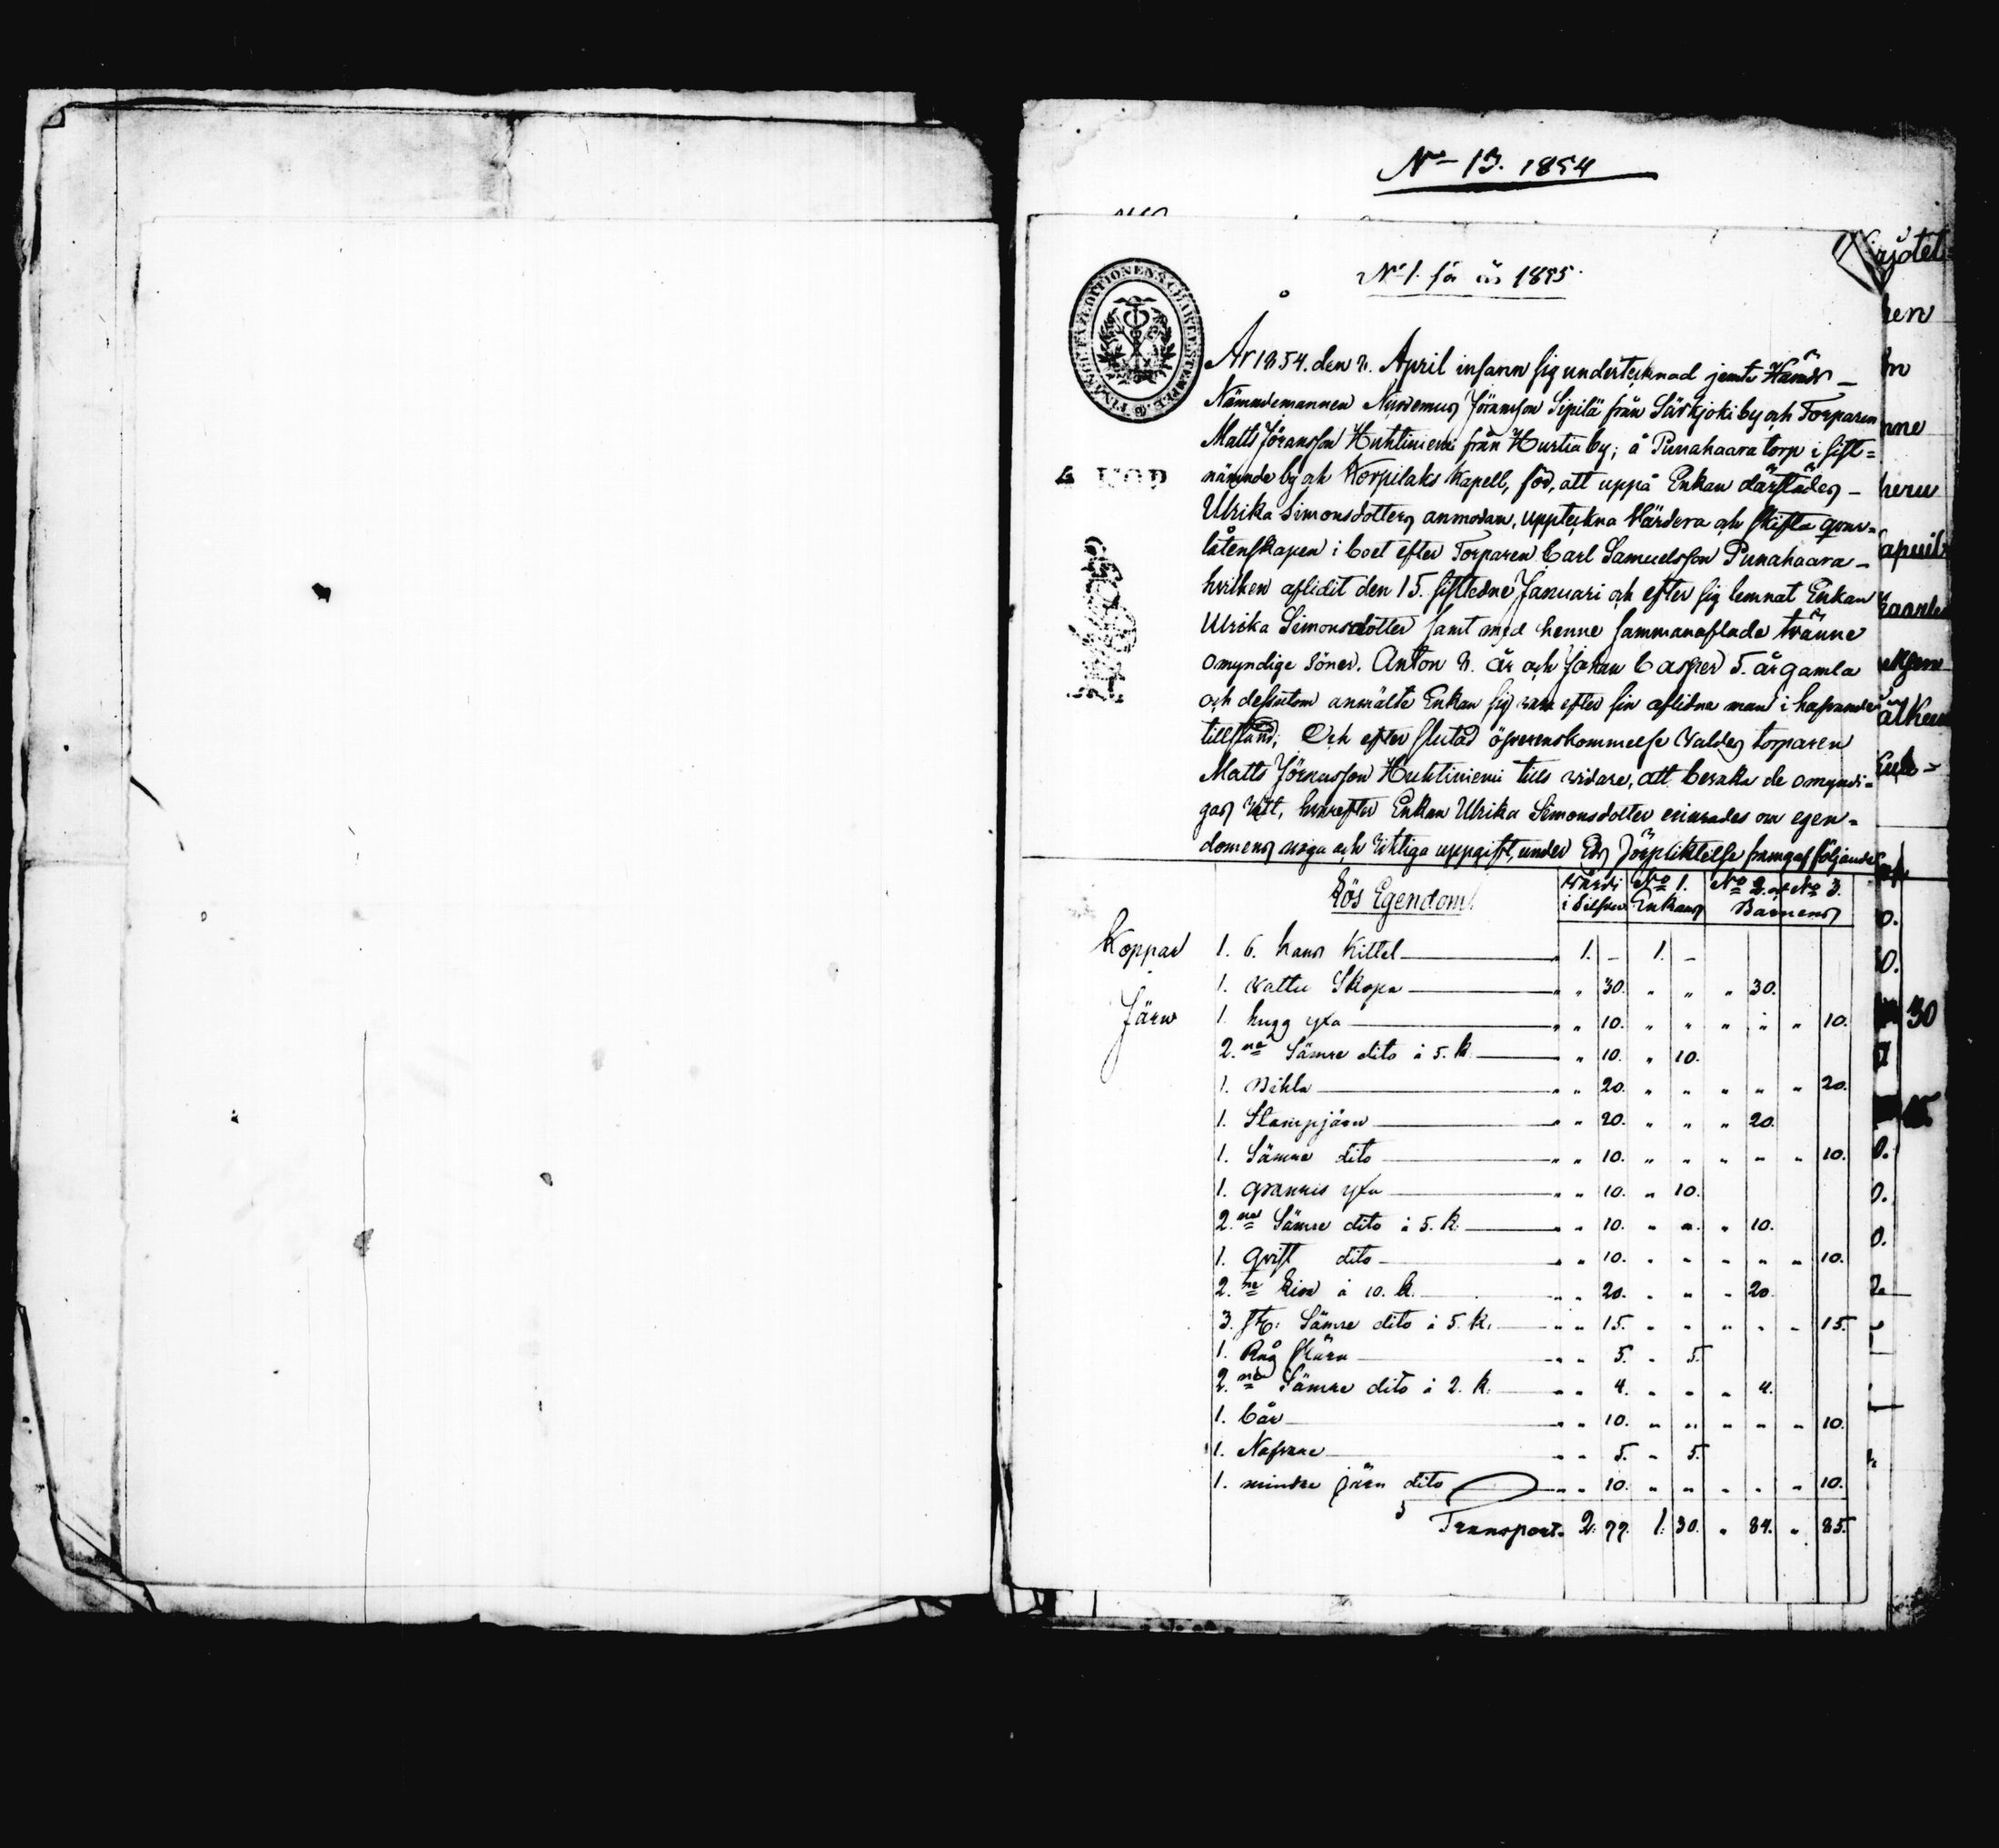 No 13. 1854
No 1. för år 1855.
FINANCE EXPEDITIONENS CHARTÆ STEMPEL
4 KOP
År 1854. den 8. April infann sig undertecknad jemte Härads
Nämndemannen Nicodemus Jöransson Sipilä från Särkjoki by och Torparen
Matts Jöransson Huhtiniemi från Hurtia by; å Punahaara torp i sist=
nämnde by och Korpilaks Kapell, för, att uppå Enkan därstädes
Ulrika Simonsdotters anmodan, uppteckna Värdera och skifta qvar=
låtenskapen i boet efter Torparen Carl Samuelsson Punahaara
hvilken aflidit den 15. sistledne Januari och efter sig lemnat Enkan
Ulrika Simonsdotter samt med henne sammanaflade tvänne
omyndige söner. Anton 8. år och Johan Casper 5. år gamla
och dessutom anmälte Enkan sig vara efter sin aflidne man i hafvande
tillstånd; Och efter slutad öfverenskommelse Valdes torparen
Matts Jöransson Huhtiniemi tills vidare, att bevaka de omyndi=
gas rätt, hvarefter Enkan Ulrika Simonsdotter erinrades om egen=
domens noga och riktiga uppgift, under Eds förpliktelse framgaf följande
Lös Egendom. Värdi i Silfver No 1. Enkans No 2. et No 3. Barnens
Koppar 1. 6. kans Kittel 1. – 1. –
1. vattu Skopa " " 30. " " " 30.
Järn 1. hugg yxa " " 10. " " " " " 10.
2.ne Sämre dito á 5. k. " 10. " 10.
1. Bihla " " 20. " " " " " 20.
1. Stampjärn " " 20. " " " 20.
1. Sämre dito " " 10. " " " " " 10.
1. yxa " " 10. " 10.
2.ne Sämre dito á 5. k. " " 10. " " " 10.
1. qvist dito " " 10. " " " " " 10.
2.ne Liar á 10. k. " " 20. " " " 20.
3. st: Sämre dito á 5. k. " " 15. " " " " " 15.
1. Råg skära " " 5. " 5.
2.ne Sämre dito á 2. k. " " 4. " " " 4.
1. bår " " 10. " " " " " 10.
1. Nafvare " " 5. " 5.
1. mindre järn dito " " 10. " " " " " 10.
Transport. 2. 99. 1. 30. " 84. " 85.